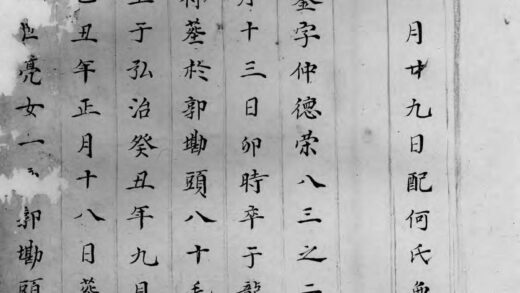 月廿九日配何氏
字仲德荣八三之二
月十三日卯時卒于龍
葬於郭墈頭八十
于弘治癸丑年九月
丑年正月十八日葬
亮女一郭墈頭